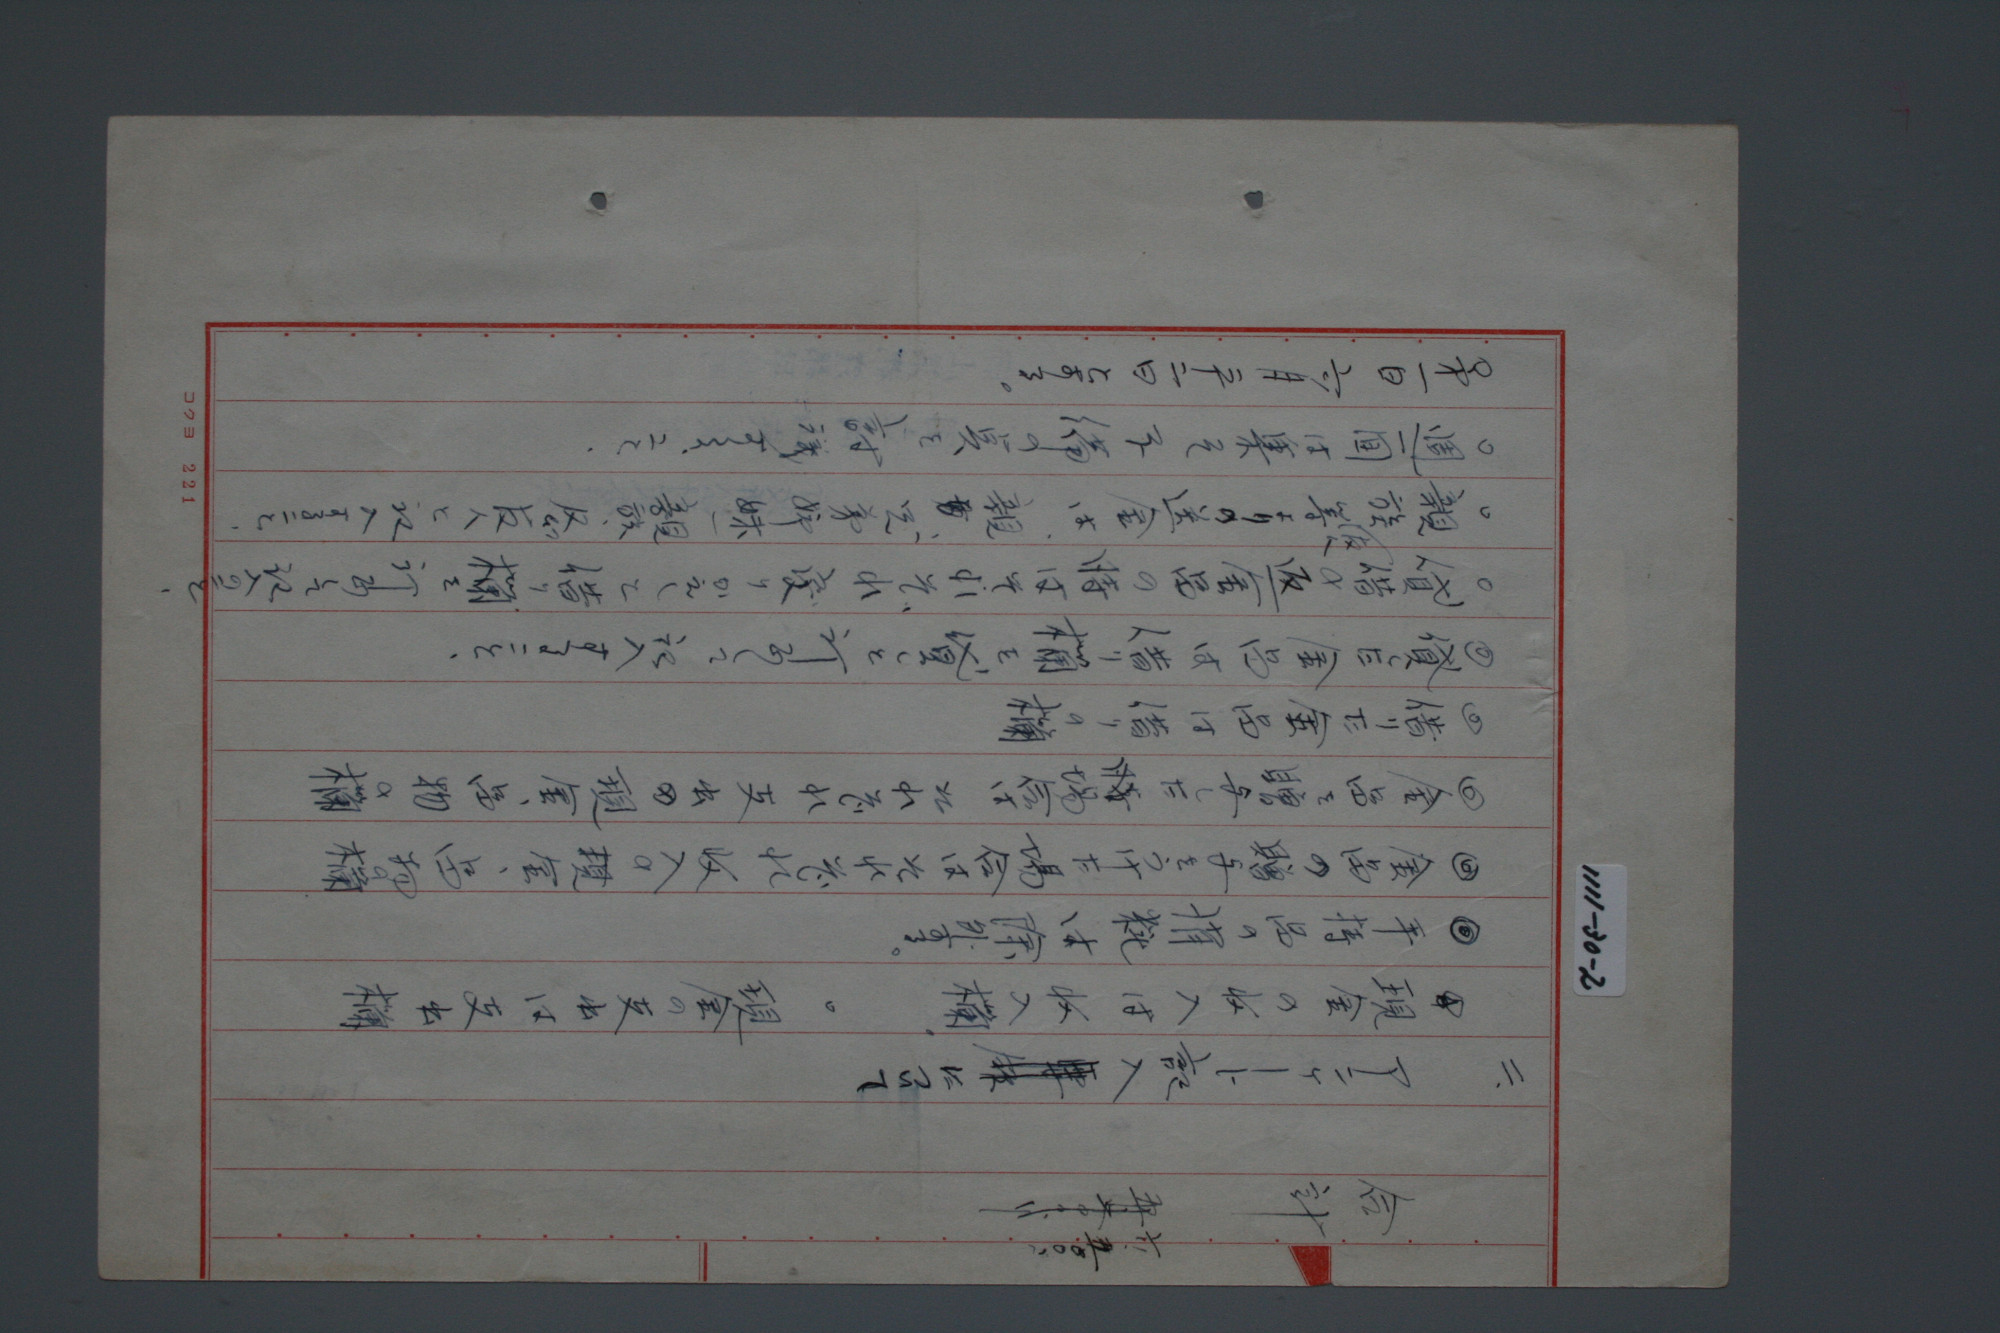 会計
二、アンケート記入について
現金の収入は収入欄。 。現金の支出は支出欄
◎手持品の消耗は除外する。
◎金品の贈与をうけた場合はそれぞれ収入の現金、品物欄
◎金品を贈与した場合はそれぞれ支出の現金、品物の欄
◎借りた金品は借りの欄
◎貸した金品は借り欄を貸しと訂正し記入すること、
○貸借の返金品の時はそれぞれ として借り欄を訂正し記入のこと、
○親族等よりの送金は、親、兄弟姉妹、親戚、知友人と記入すること、
○週一回は集 討議すること、
○第一日 六月 二日とする。
コクヨ 221
1111-30-2